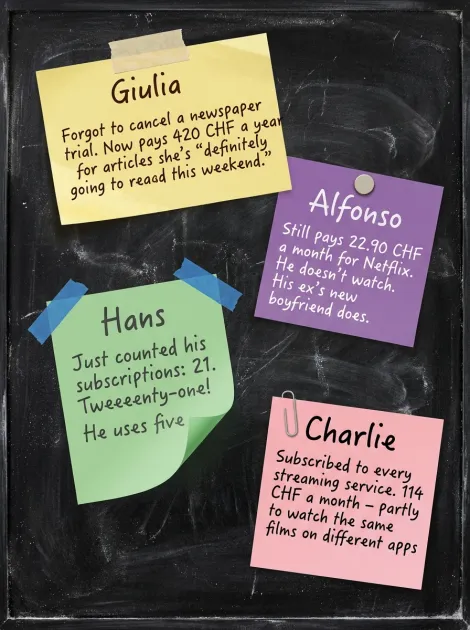 Giulia
Forgot to cancel a newspaper
trial. Now pays 420 CHF a year
for articles she's “definitely
going to read this weekend.”
Alfonso
Still pays 22.90 CHF
a month for Netflix.
He doesn't watch.
His ex's new
boyfriend does.
Hans
Just counted his
subscriptions: 21.
Tweeeenty-one!
He uses five
Charlie
Subscribed to every
streaming service. 114
CHF a month – partly
to watch the same
films on different apps